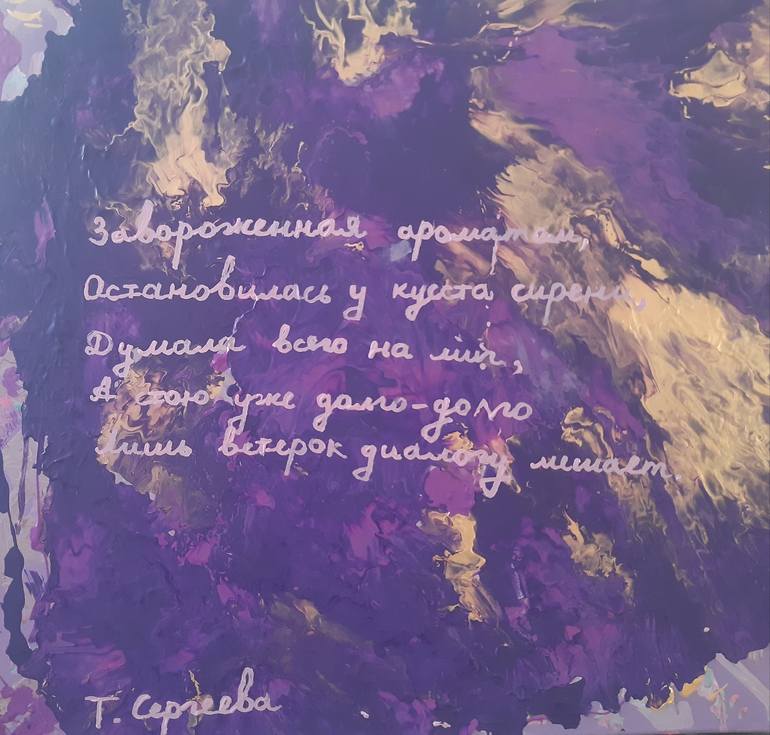 Завороженная ароматом,
Остановилась у куста сирени,
Думала всего на миг,
А стою уже долго-долго
Лишь ветерок диалогу мешает.
Т. Сергеева